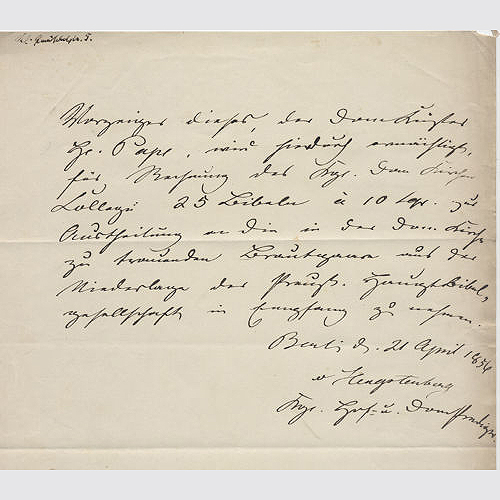 Vorzeiger dieses, der Dom-Küster
Hr. Pape, wird hierdurch ermächtigt,
für Rechnung des Kgl. Dom Kirchen
Collegii 25 Bibeln à 10 sgr. zur
Austheilung an die in der Dom-Kirche
zu trauenden Brautpaare aus der
Niederlage der Preuß. Hauptbibel-
gesellschaft in Empfang zu nehmen.
Berlin d. 21 April 1856
v Hengstenberg
Kgl. Hof- u. Domprediger.